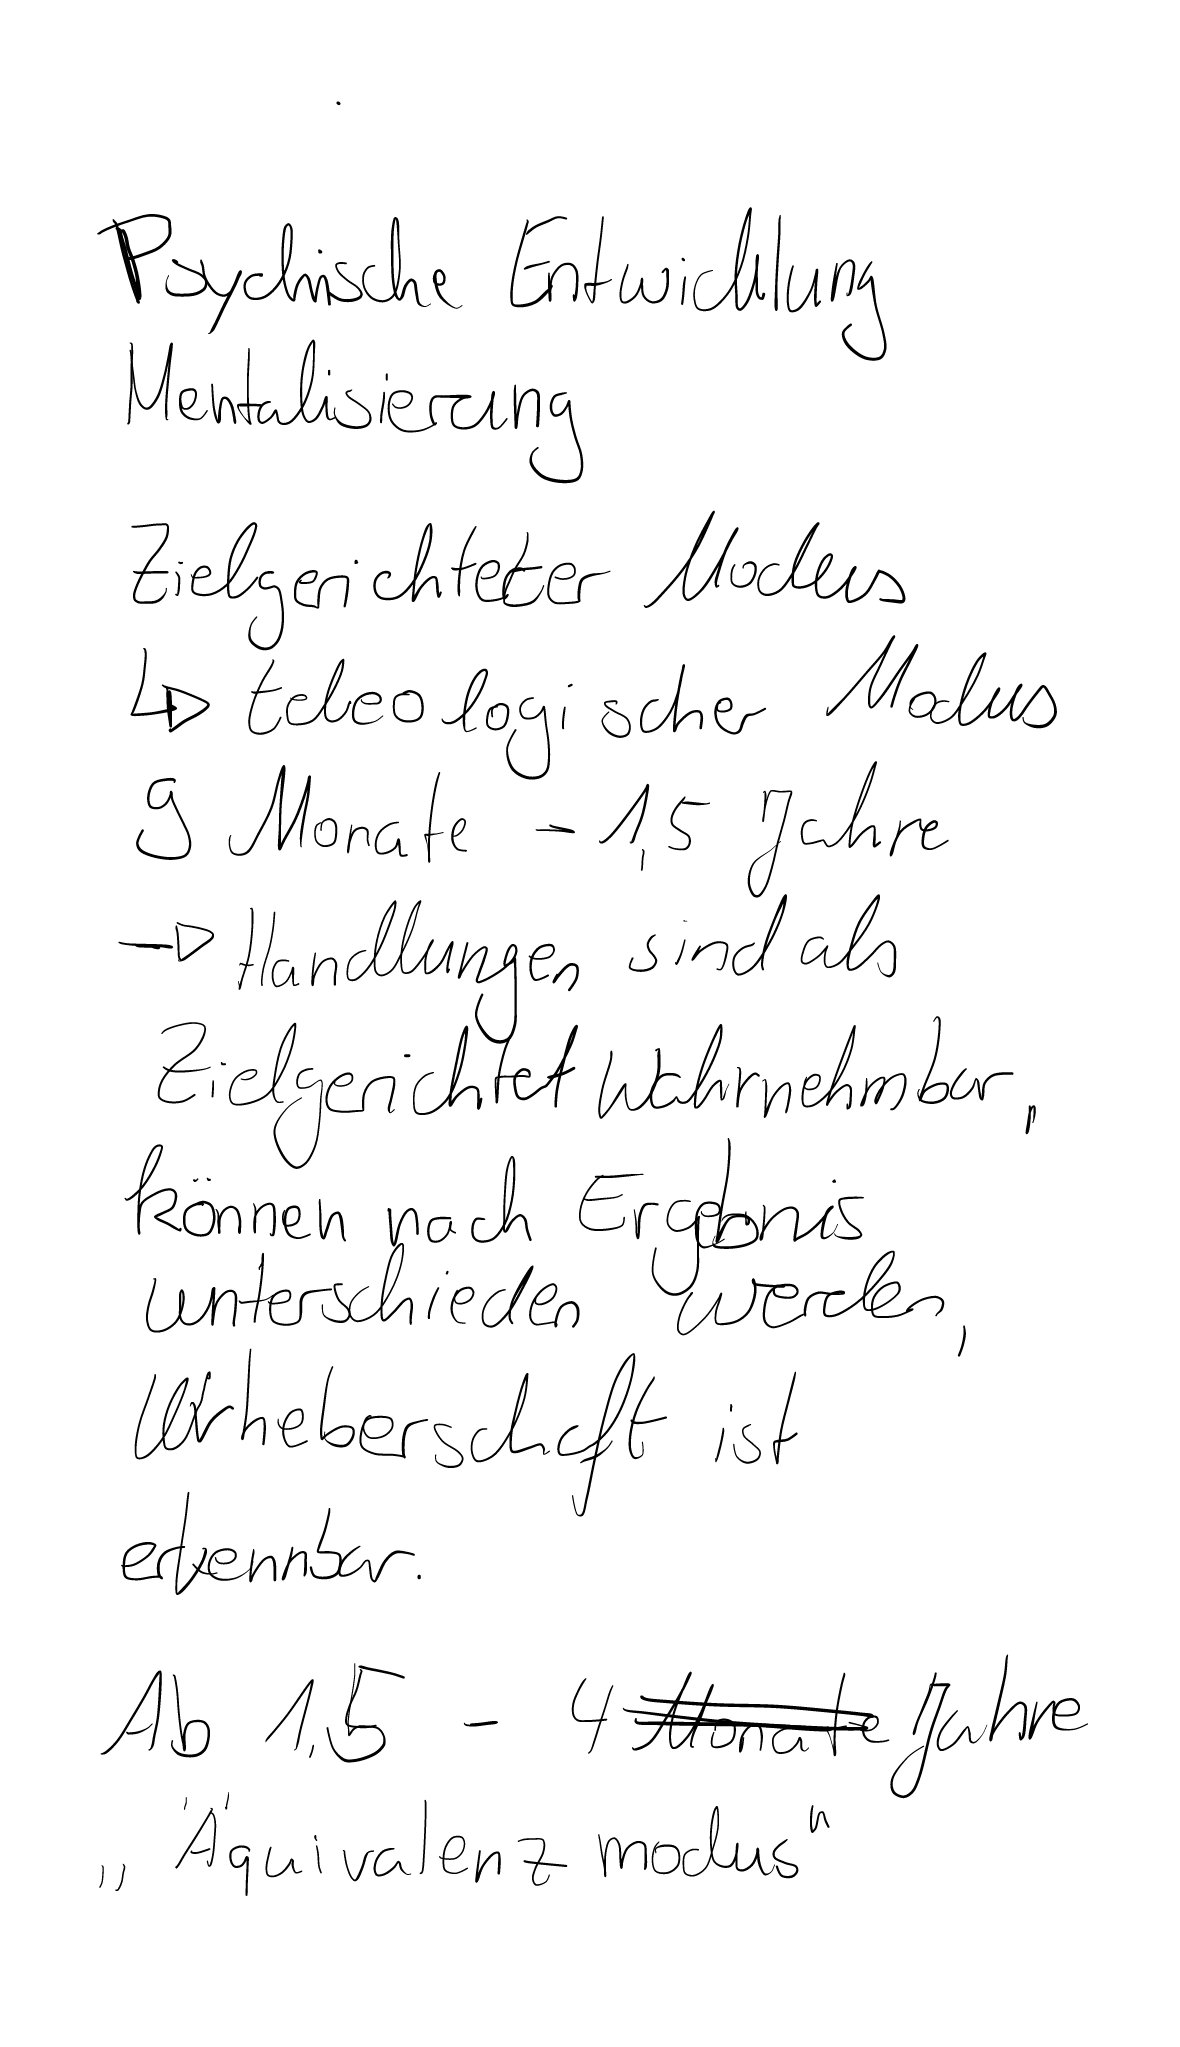 Psychische Entwicklung
Mentalisierung
Zielgerichteter Modus
↳ teleologischer Modus
9 Monate - 1,5 Jahre
→ Handlungen sind als
Zielgerichtet Wahrnehmbar,
können nach Ergebnis
unterschieden werden,
Urheberschaft ist
erkennbar.
Ab 1,5 - 4 Monate Jahre
„Äquivalenz modus"